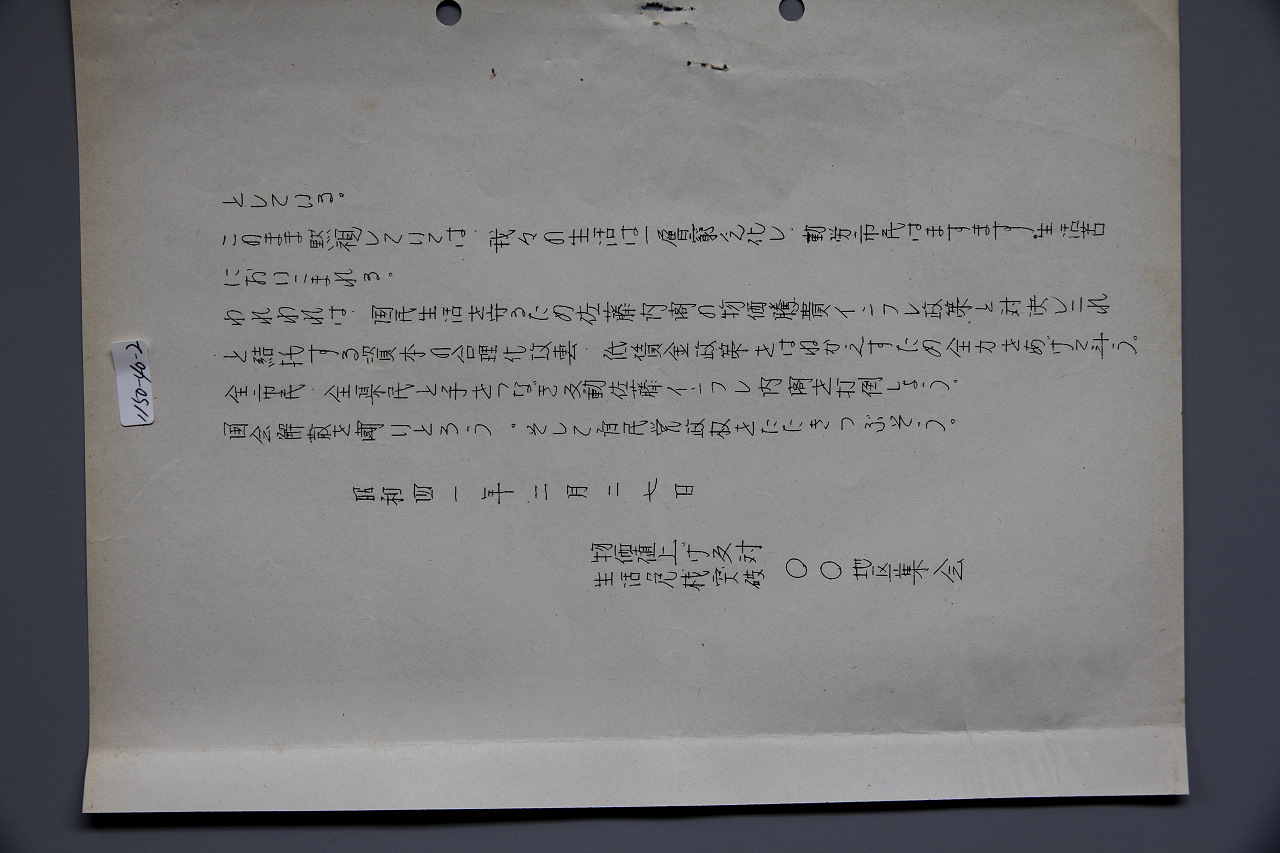 としている。
このまま黙視していては、我々の生活は一層窮乏化し、勤労市民はますます生活苦
においこまれる。
われわれは、国民生活を守るため佐藤内閣の物価騰貴インフレ政策と対決しこれ
と結托する資本の合理化攻撃、低賃金政策をはねかえすため全力をあげて斗う。
全市民、全県民と手をつなぎ反動佐藤インフレ内閣を打倒しよう。
国会解散を闘いとろう。そして自民党政权をたたきつぶそう。
昭和四一年二月二七日
物価値上げ反対
生活危機突破
〇〇地区集会
1150-40-2